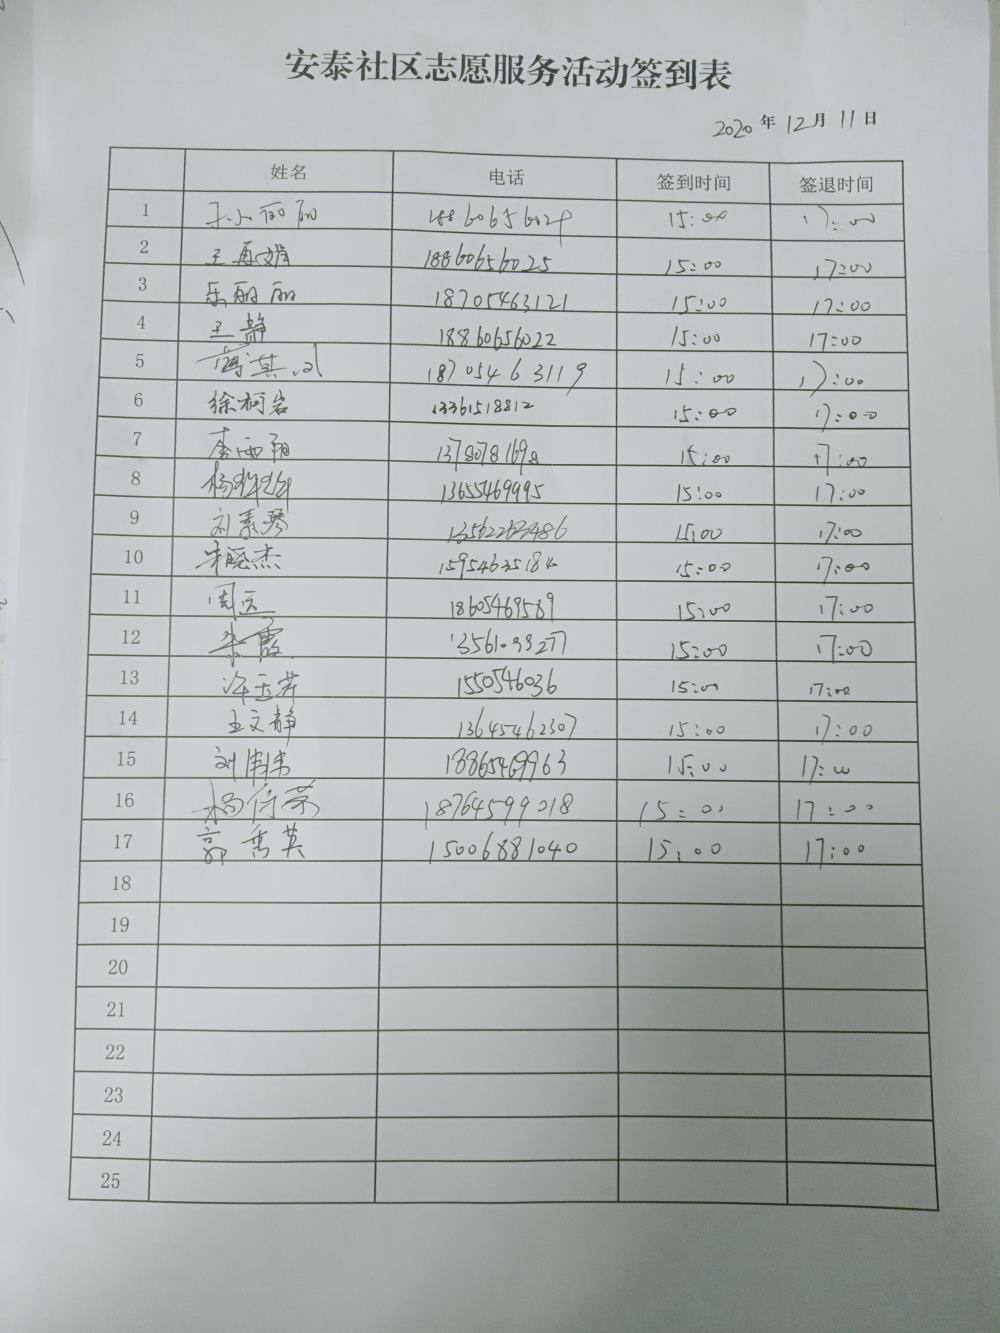 安泰社区志愿服务活动签到表
2020年12月11日
姓名 电话 签到时间 签退时间
1 丽丽 15:00 17:00
2 王 18860656025 15:00 17:00
3 乐丽丽 18705463121 15:00 17:00
4 王静 18860656022 15:00 17:00
5 18705463119 15:00 17:00
6 徐柯岩 13361518812 15:00 17:00
7 李 15:00 17:00
8 杨 13655469995 15:00 17:00
9 刘素琴 13562263486 15:00 17:00
10 杰 15:00 17:00
11 周 18605469589 15:00 17:00
12 霞 15:00 17:00
13 许玉芹 1550546036 15:00 17:00
14 王文静 13645462307 15:00 17:00
15 刘伟 15:00 17:00
16 杨 荣 18764599018 15:00 17:00
17 郭秀英 15006881040 15:00 17:00
18
19
20
21
22
23
24
25